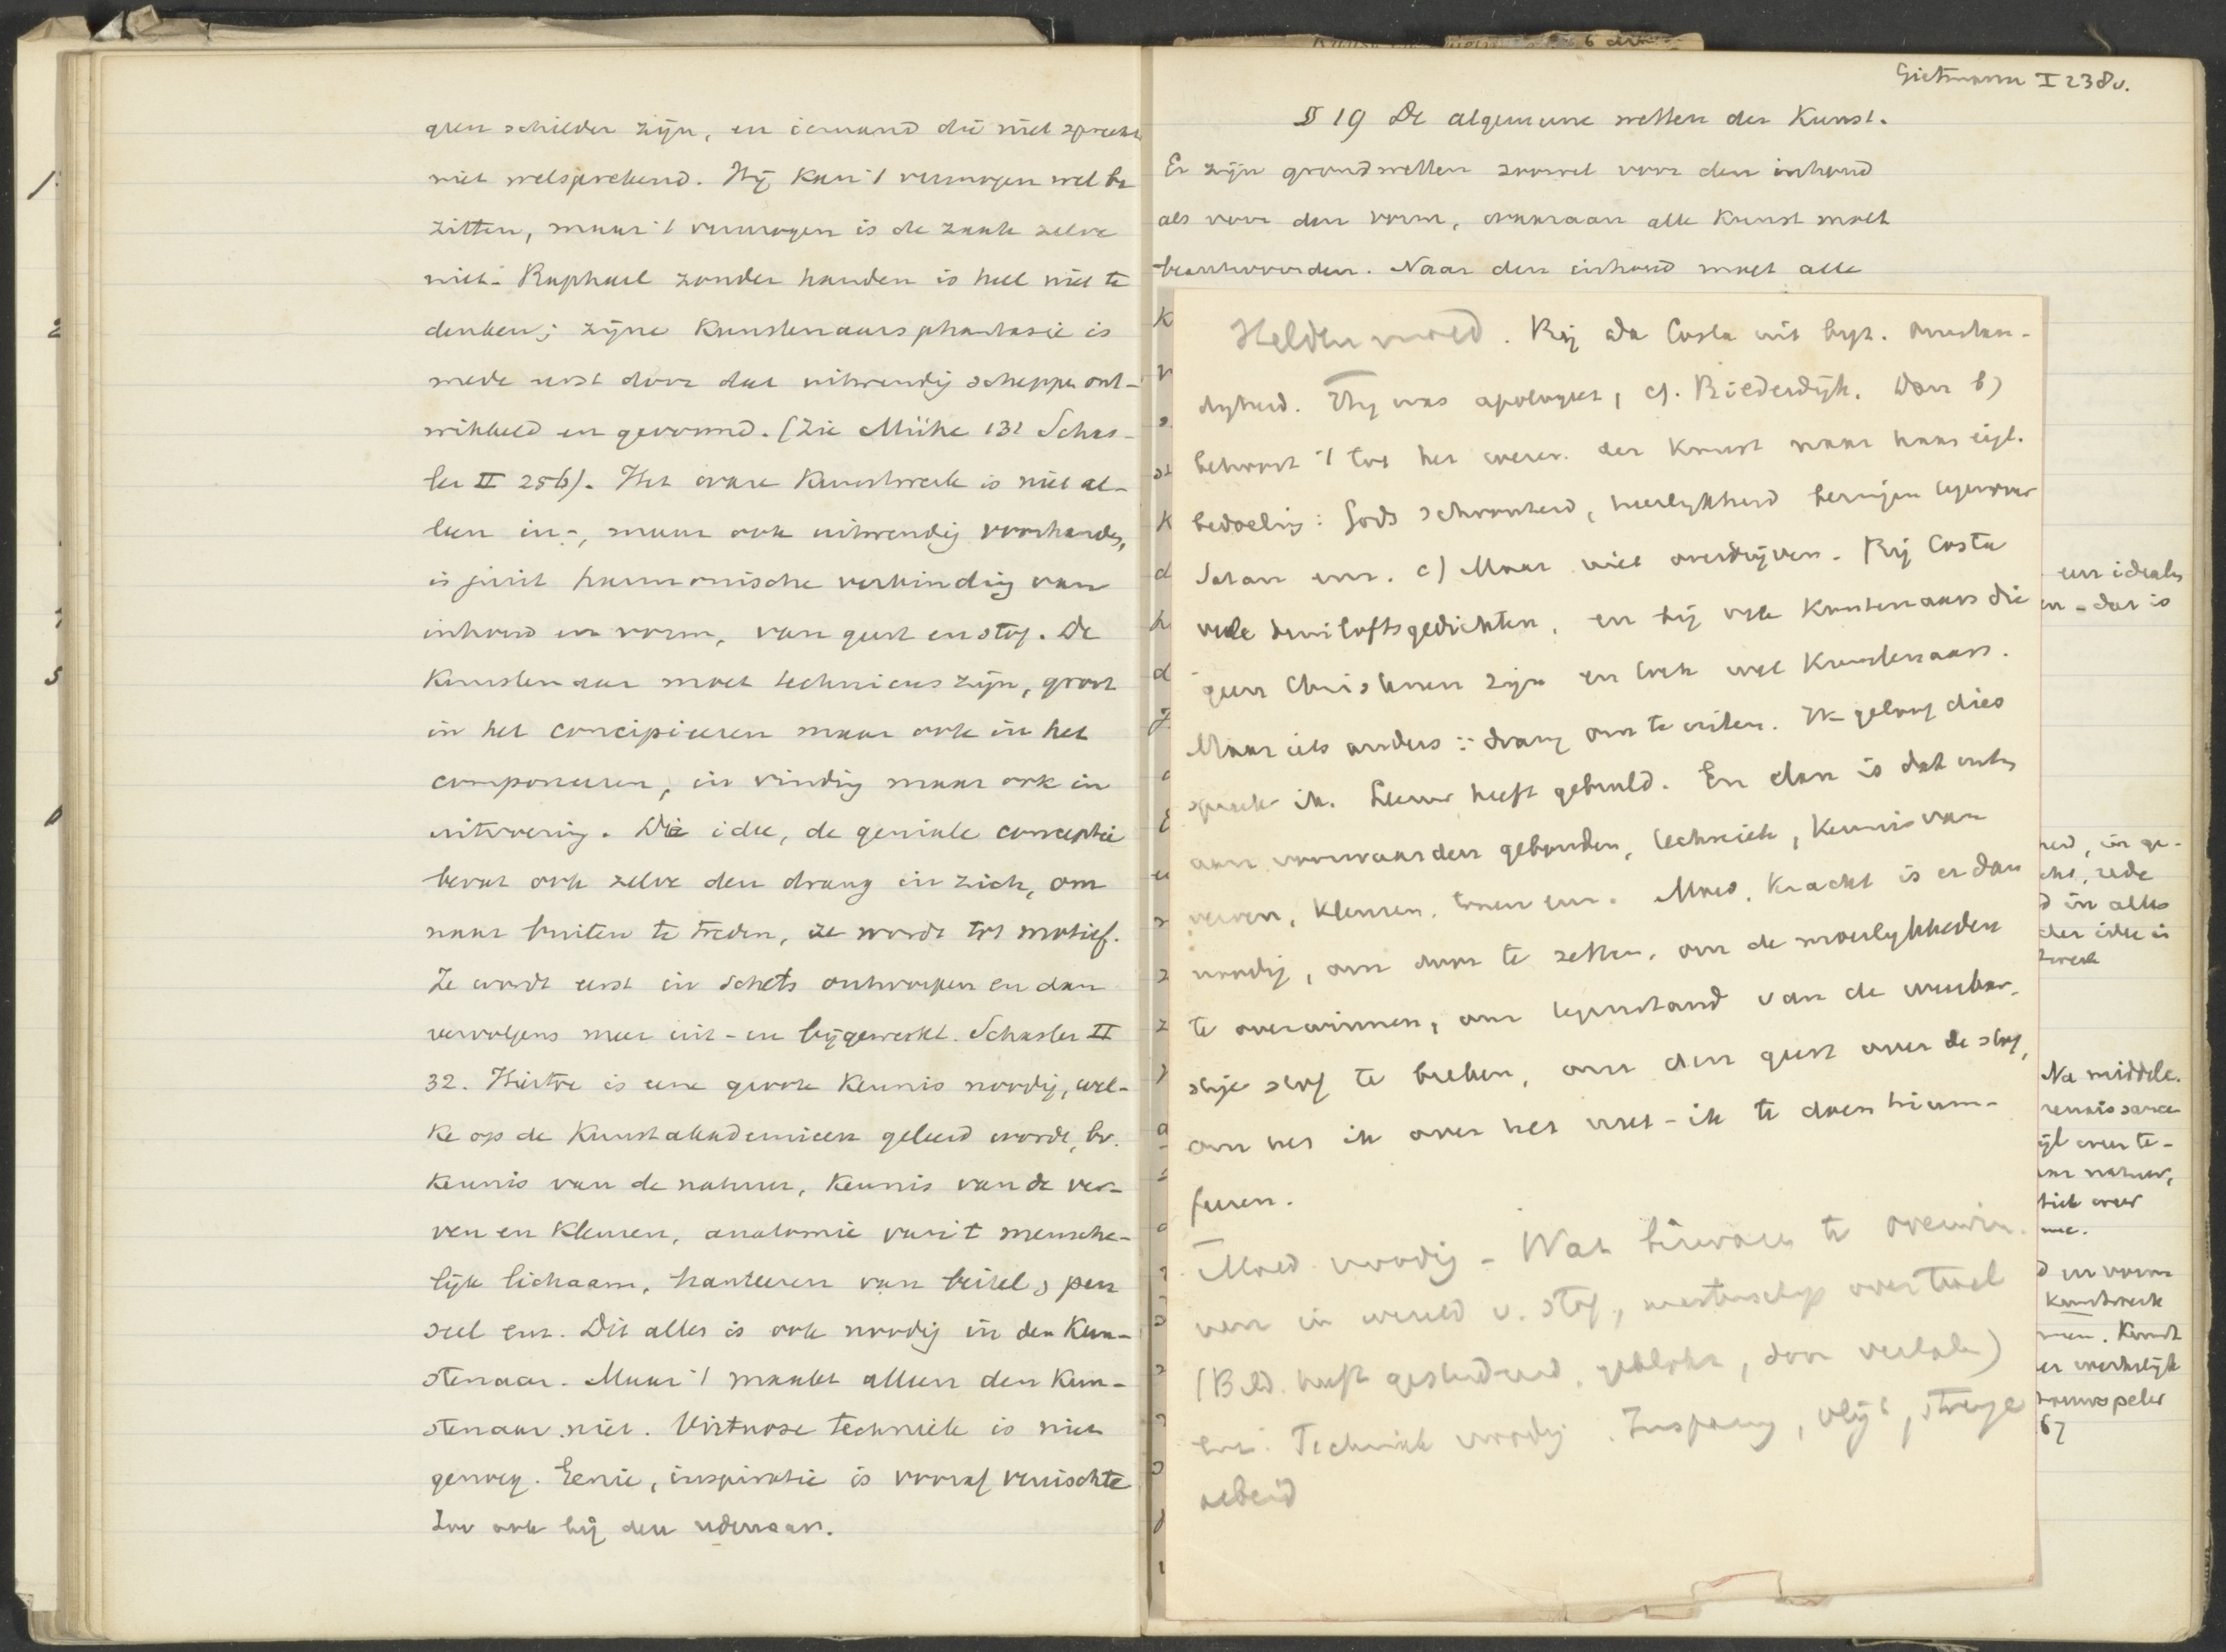 geen schilder zijn, en iemand die niet spreekt
niet welsprekend. Hij kan 't vermogen wel be
zitten, maar 't vermogen is de zaak zelve
niet. Raphael zonder handen is heel niet te
denken; zijne Kunstenaarsphantasie is
mede eerst door dat uitwendig scheppen ont-
wikkeld en gevormd. (Zie Mühe 131 Schas-
ler II 256). Het ware Kunstwerk is niet al-
leen in-, maar ook uitwendig voorhanden,
is juist harmonische verbinding van
inhoud en vorm, van geest en stof. De
Kunstenaar moet technicus zijn, groot
in het concipieeren maar ook in het
componeeren, in vinding maar ook in
uitvoering. Die idee, de geniale conceptie
bevat ook zelve den drang in zich, om
naar buiten te treden, ze wordt tot motief.
Ze wordt eerst in schets ontworpen en dan
vervolgens meer uit- en bijgewerkt. Schasler II
32. Hiertoe is eene groote Kennis noodig, wel-
ke op de Kunstakademieen geleerd wordt, bv.
Kennis van de natuur, Kennis van de ver-
ven en Kleuren, anatomie van 't mensche-
lijk lichaam, hanteeren van beitel, pen
seel enz. Dit alles is ook noodig in den Kun-
stenaar. Maar 't maakt alleen den Kun-
stenaar niet. Virtuose techniek is niet
genoeg. Genie, inspiratie is vooraf vereischte
Zoo ook bij den redenaar.
Gietmann I 238v.
§ 19 De algemeene wetten der Kunst.
Er zijn grondwetten zoowel voor den inhoud
als voor den vorm, waaraan alle Kunst moet
beantwoorden. Naar den inhoud moet alle
Heldenmoed. Bij da Costa uit byz. omstan-
digheid. Hij was apologeet, cf. Bilderdijk. Dan b)
behoort 't tot het wezen der Kunst naar haar eigl.
bedoeling: Gods schoonheid, heerlijkheid brengen tegenover
Satan enz. c) Maar niet overdrijven. Bij Costa
vele bruiloftsgedichten, en bij vele Kunstenaars die
geen Christenen zijn en toch wel Kunstenaars.
Maar iets anders: drang om te uiten. Ik geloof dies
spreek ik. Leeuw heeft gebruld. En dan is dat uiten
aan voorwaarden gebonden, techniek, Kennis van
verven, Kleuren, tonen enz. Moed, Kracht is er dan
noodig, om door te zetten, om de moeilykheden
te overwinnen, om tegenstand van de
stof te breken, om den geest over de stof,
om het ik over het niet-ik te doen trium-
feeren.
Moed noodig - Wat bezwaren te overwin
nen in wereld v. stof, meesterschap over taal
(Bild. heeft gestudeerd, geblokt, door
enz. Techniek noodig. Inspanning, vlijt, strenge
arbeid
een ideaal
en - dat is
rede
in alles
der idee is
Na middele.
renaissance
Kunstwerk
Kunst